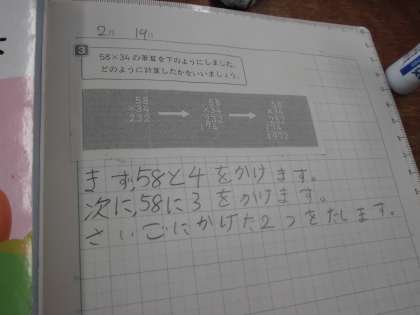 2月 19日
3
58×34の筆算を下のようにしました。
どのように計算したかをいいましょう。
58 58 58
×34 ×34 ×34
232 232 232
174 174
1972
まず,58と4をかけます。
次に,58に3をかけます。
さいごにかけた2つをたします。